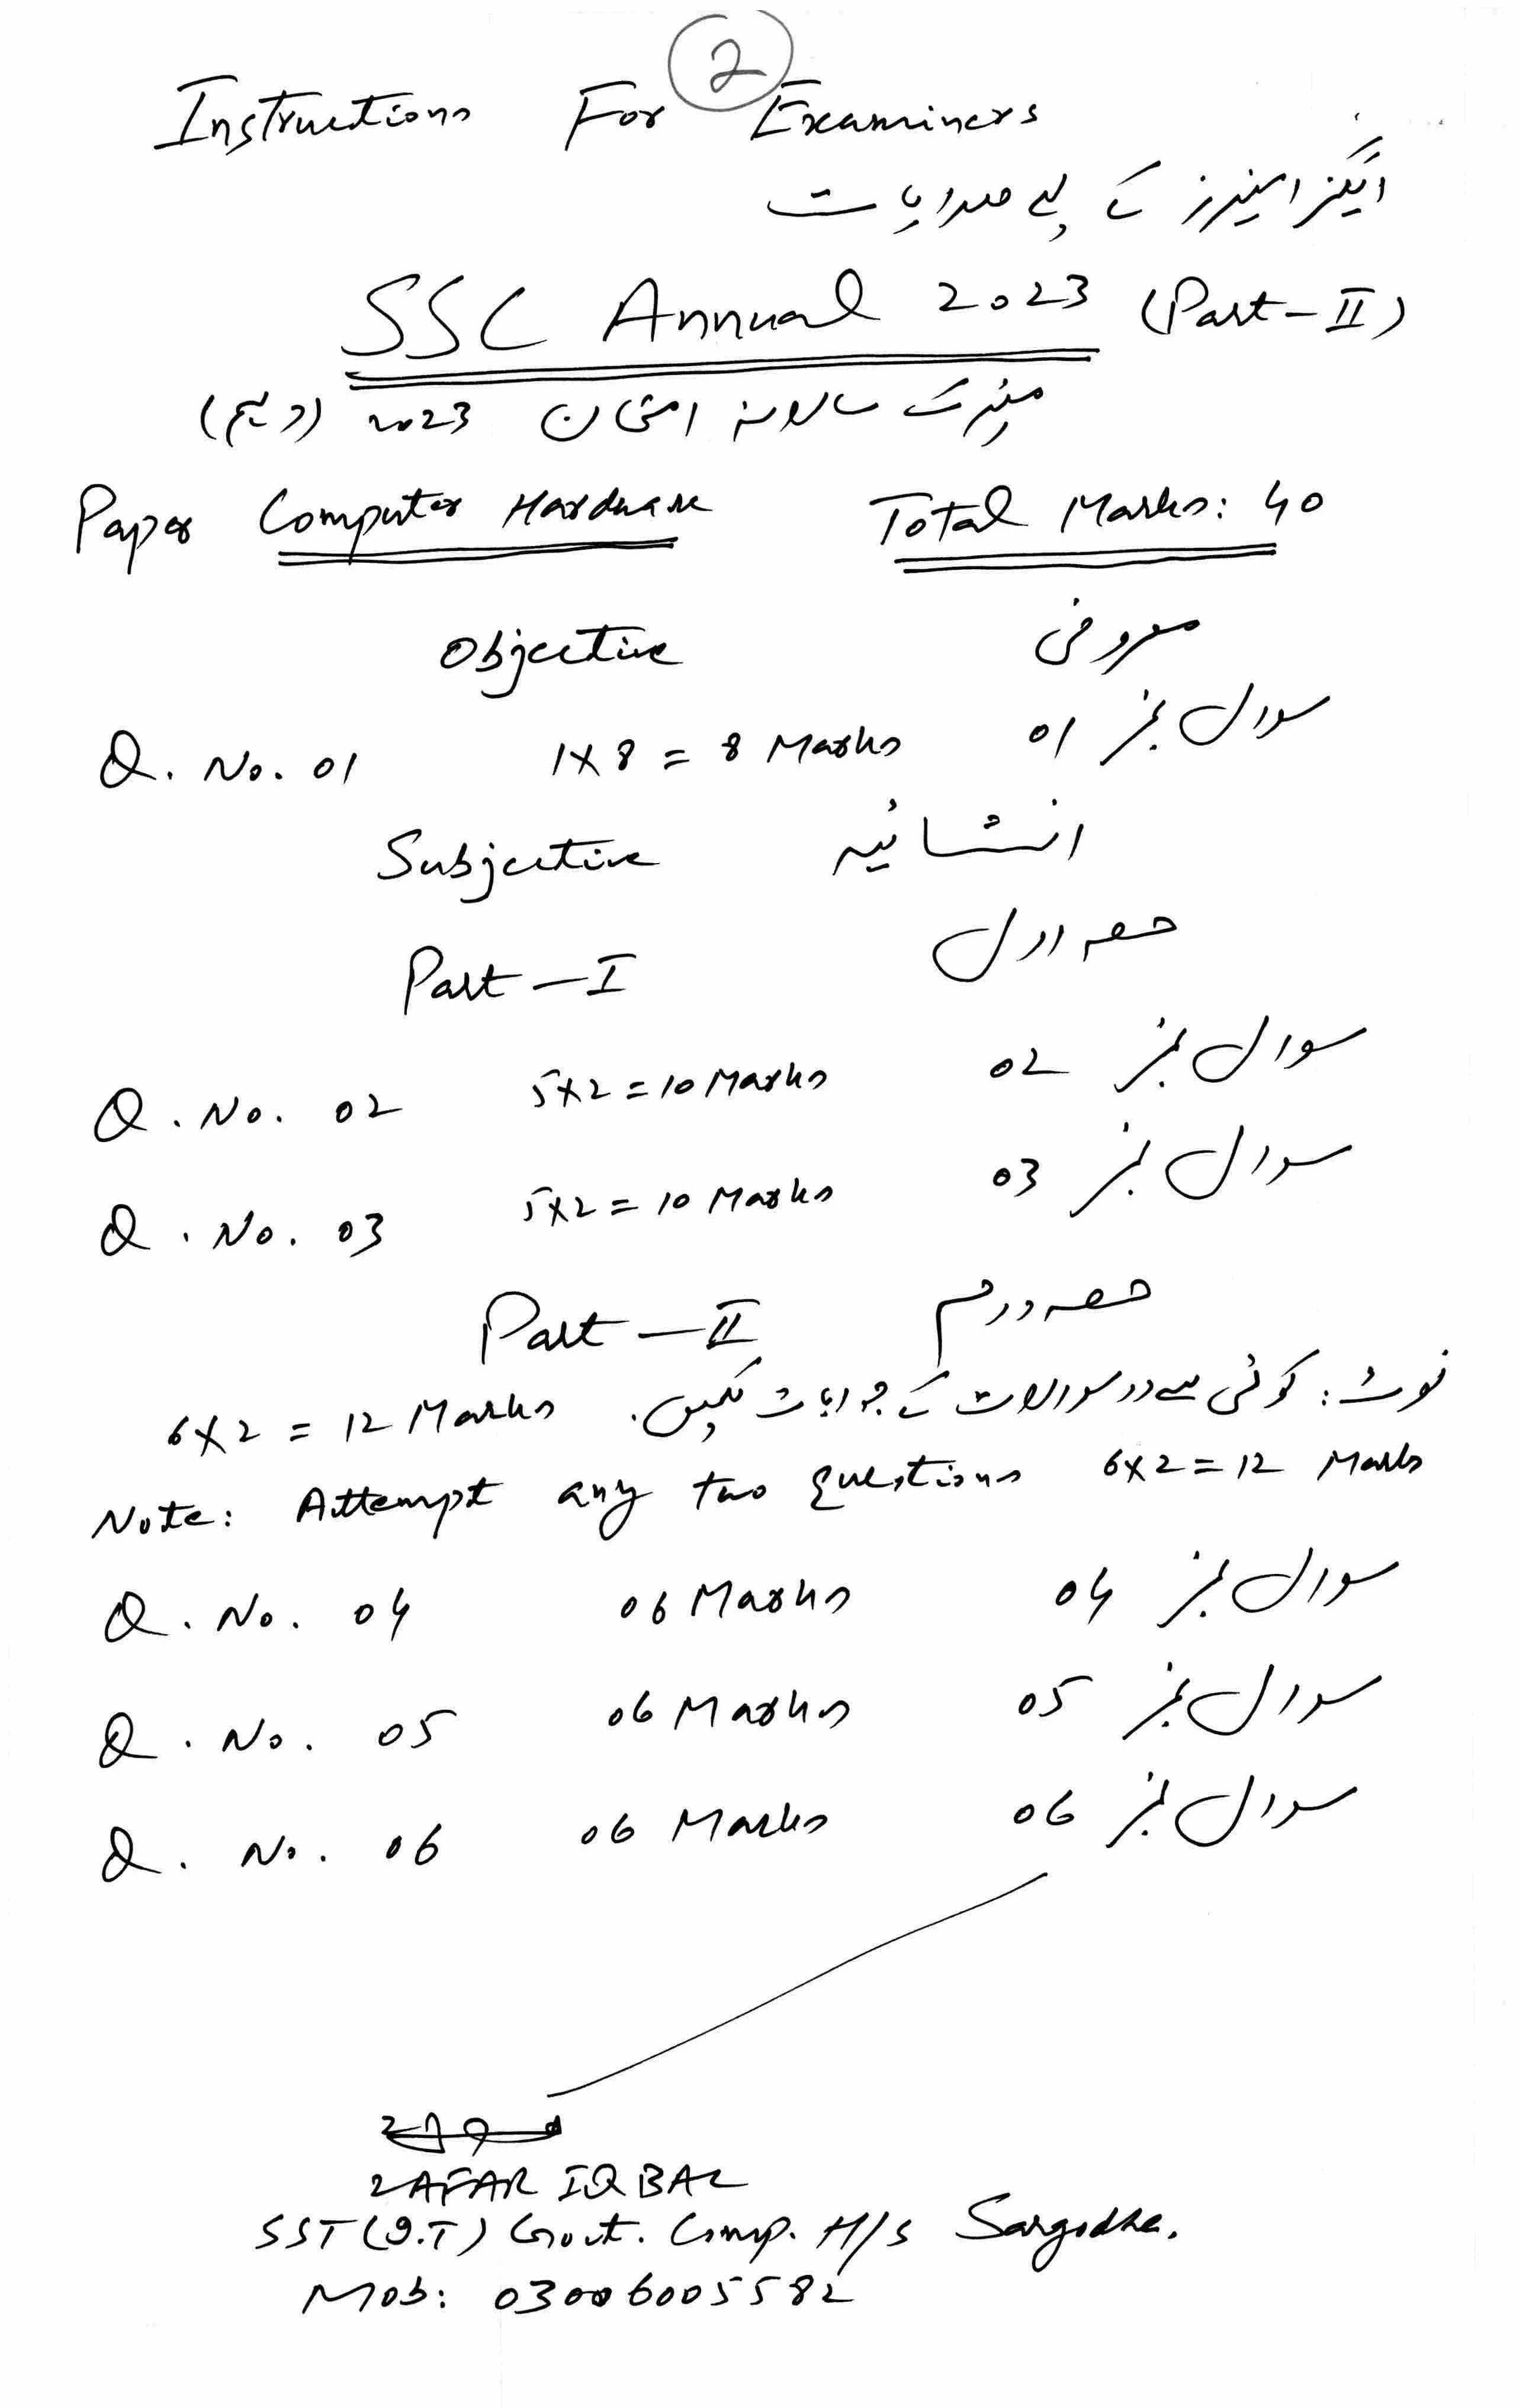 2
Instructions For Examiners
ایگزامینرز کے لیے ہدایات
SSC Annual 2023 (Part-II)
میٹرک سالانہ امتحان 2023 (دہم)
Paper Computer Hardware Total Marks: 40
Objective معروضی
Q. No. 01 1x8 = 8 Marks سوال نمبر 01
Subjective انشائیہ
Part-I حصہ اول
Q. No. 02 5x2 = 10 Marks سوال نمبر 02
Q. No. 03 5x2 = 10 Marks سوال نمبر 03
Part-II حصہ دوم
نوٹ: کوئی سے دو سوالات کے جوابات لکھیں۔ 6x2 = 12 Marks
Note: Attempt any two questions 6x2 = 12 Marks
Q. No. 04 06 Marks سوال نمبر 04
Q. No. 05 06 Marks سوال نمبر 05
Q. No. 06 06 Marks سوال نمبر 06
ZAFAR IQBAL
SST (I.T) Govt. Comp. H/S Sargodha.
Mob: 03006005582